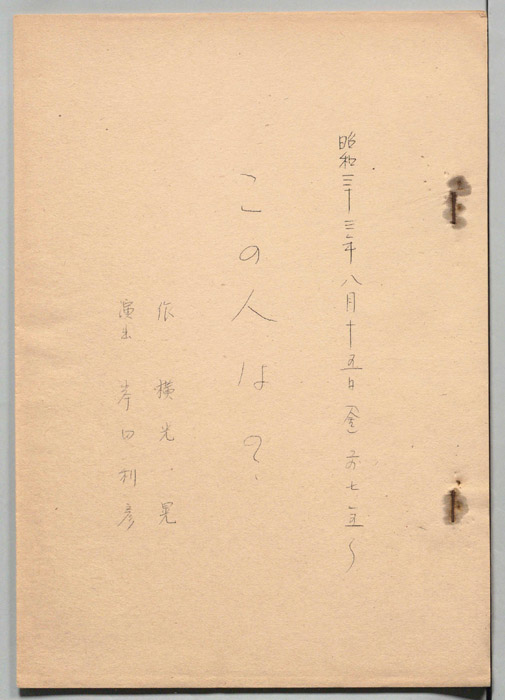 昭和三十三年八月十五日(金)前七、五〜
この人は?
作 横光、晃
演出 岸田利彦